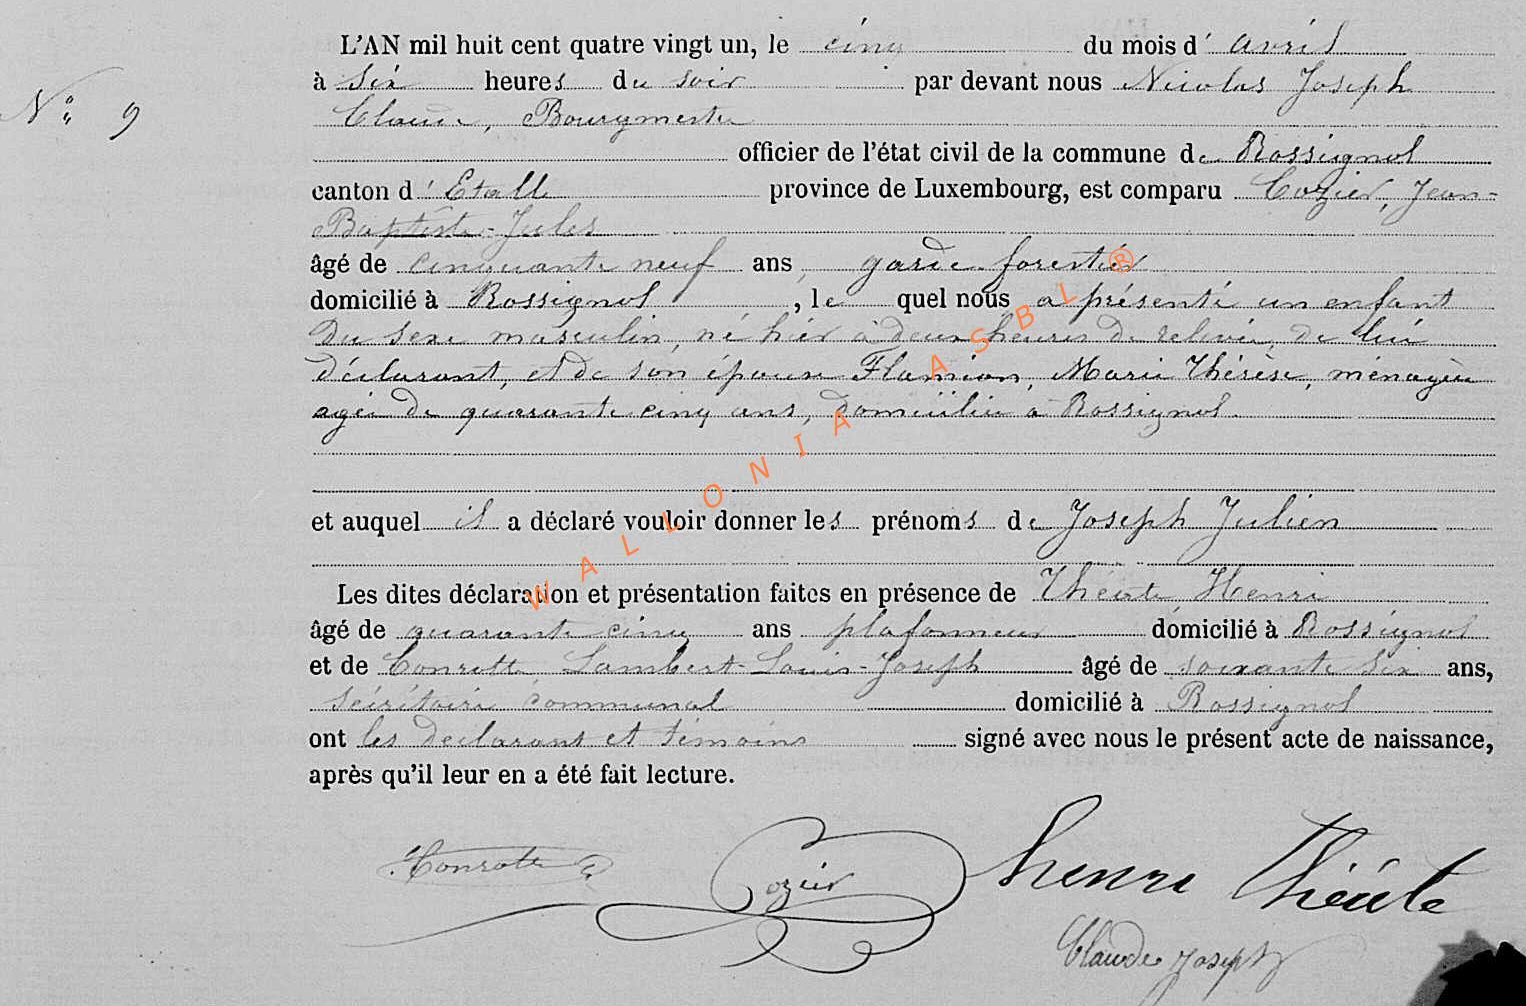 L'AN mil huit cent quatre vingt un, le cinq du mois d'avril
à six heures du soir par devant nous Nicolas Joseph
N° 9
Claude, Bourgmestre
officier de l'état civil de la commune de Rossignol
canton d'Etalle province de Luxembourg, est comparu Cozier, Jean-
Baptiste-Jules
âgé de cinquante neuf ans, garde forestier
domicilié à Rossignol, lequel nous a présenté un enfant
du sexe masculin, né hier à deux heures de relevée, de lui
déclarant, et de son épouse Flamion, Marie Thérèse, ménagère
agée de quarante cinq ans, domiciliée à Rossignol.
et auquel il a déclaré vouloir donner les prénoms de Joseph Julien
Les dites déclaration et présentation faites en présence de Théate, Henri
âgé de quarante cinq ans plafonneur domicilié à Rossignol
et de Conrotte Lambert-Louis-Joseph âgé de soixante six ans,
sécrétaire communal domicilié à Rossignol
ont les déclarant et témoins signé avec nous le présent acte de naissance,
après qu'il leur en a été fait lecture.
Conrotte Cozier henri Théate
Claude Joseph
WALLONIA ASBL ®